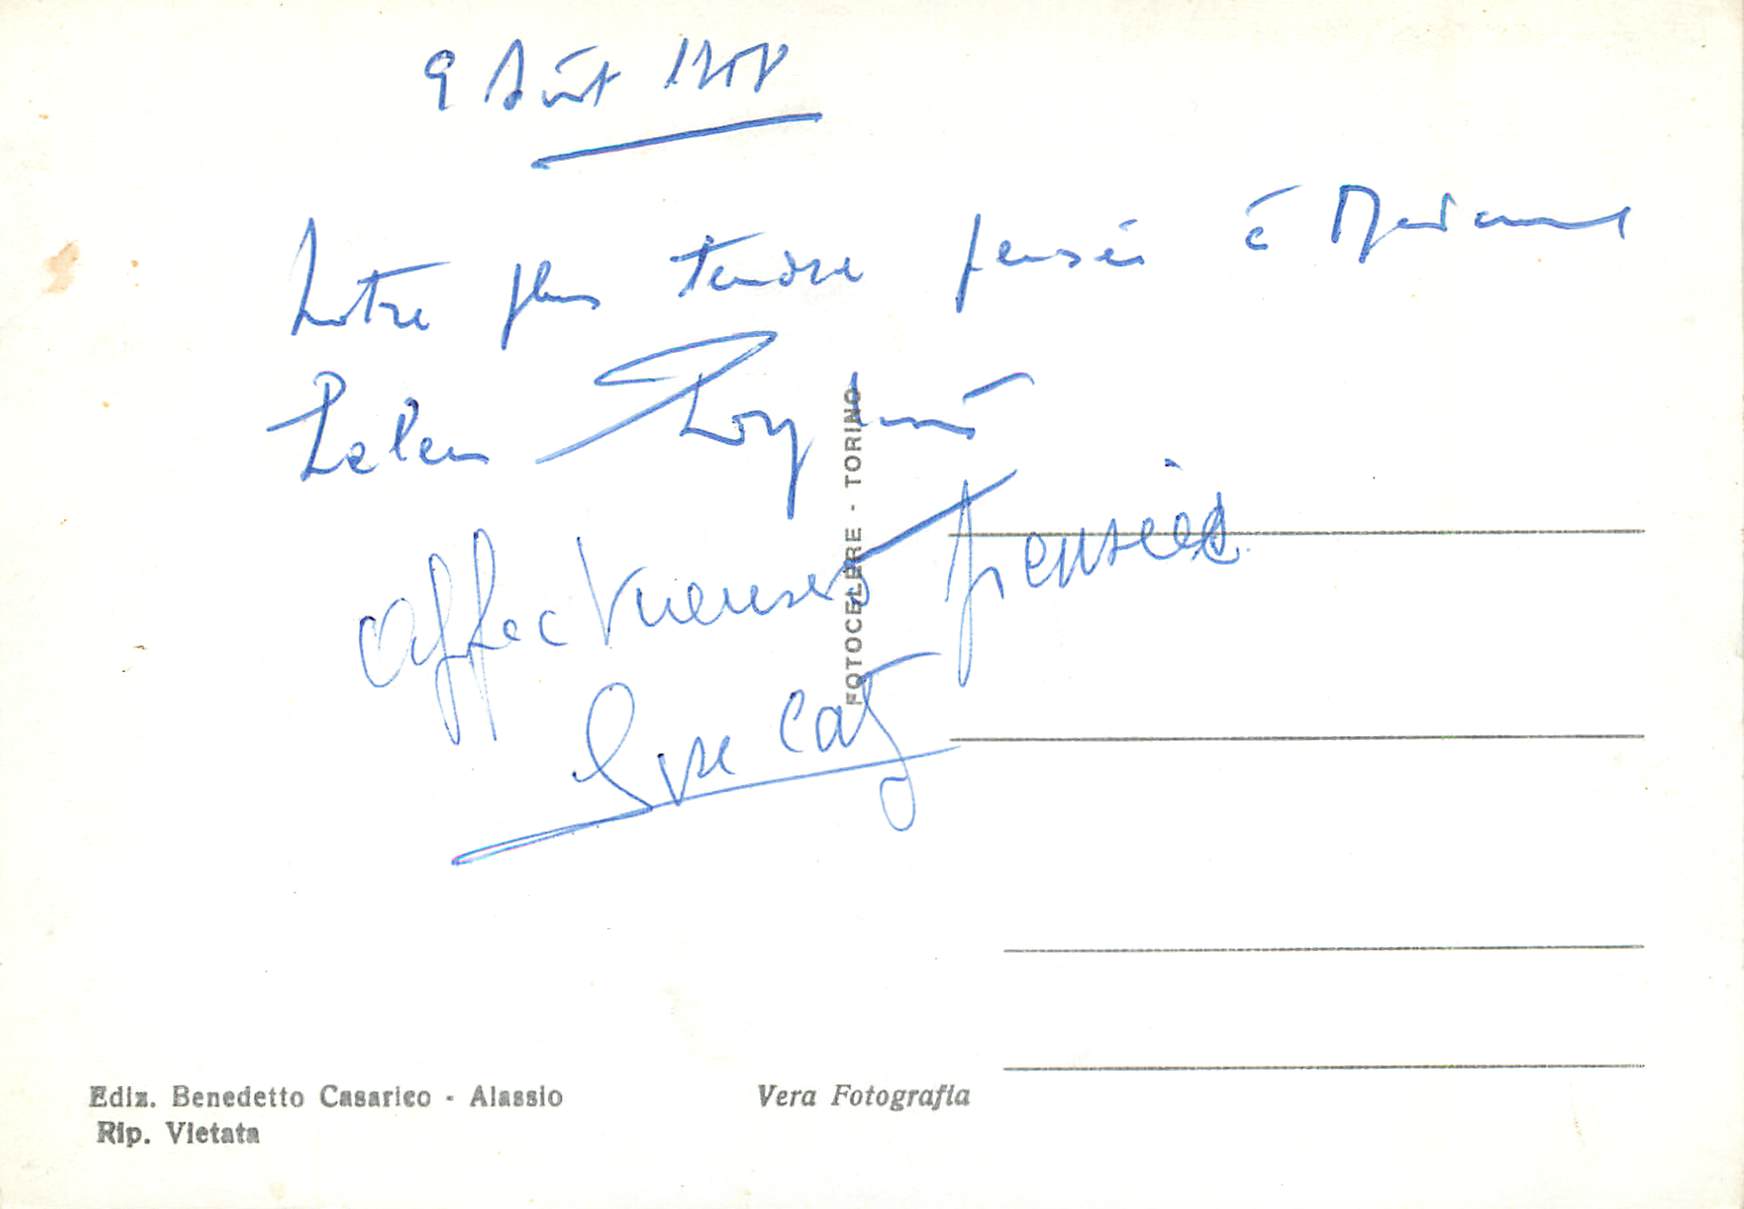 9 Août
Notre plus tendre pensée à Madame
affectueuses pensées
FOTOCELERE - TORINO
Ediz. Benedetto Casarico - Alassio
Rip. Vietata
Vera Fotografia